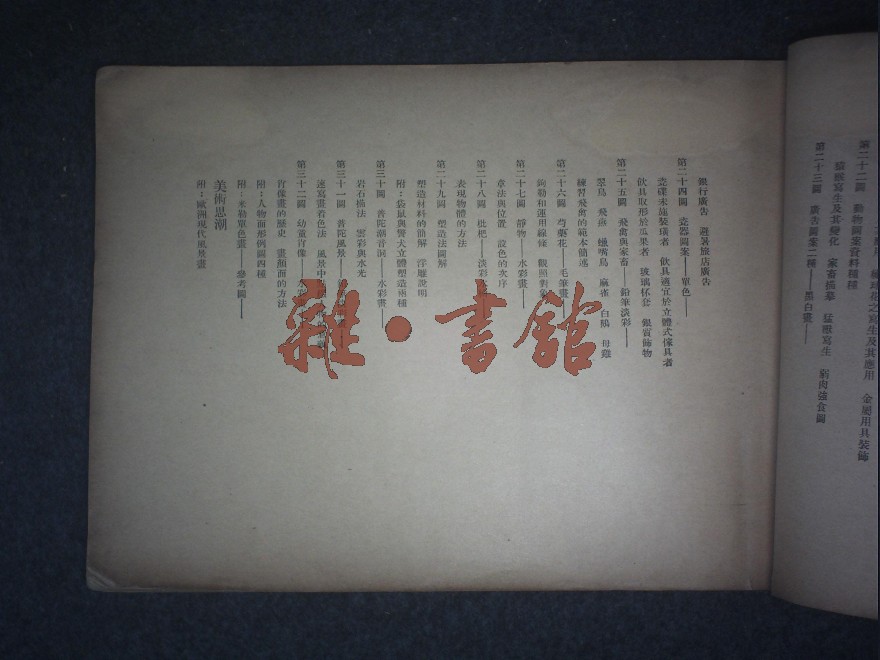 第二十二圖　動物圖案資料種種
貓猴寫生及其變化　家畜描摹　猛獸寫生　弱肉強食圖
第二十三圖　廣告圖案二種——黑白畫——
銀行廣告　避暑旅店廣告
第二十四圖　瓷器圖案——單色——
瓷碟未施裝璜者　飲具適宜於立體式傢具者
飲具取形於瓜果者　玻璃杯套　銀質飾物
第二十五圖　飛禽與家畜　鉛筆淡彩——
翠鳥　飛燕　蠟嘴鳥　麻雀　白鵝　母雞
練習飛禽的範本簡述
第二十六圖　芍藥花——毛筆畫——
鉤勒和運用線條　觀照對象
第二十七圖　靜物　水彩畫——
章法與位置　設色的次序
第二十八圖　枇杷——淡彩
表現物體的方法
第二十九圖　塑造法圖解
塑造材料的簡解　浮雕說明
附：袋鼠與警犬立體塑造兩種
第三十圖　普陀潮音洞——水彩畫——
岩石描法　雲彩與水光
第三十一圖　普陀風景——
速寫畫着色法　風景中
第三十二圖　幼童肖像——水彩
肖像畫的歷史　畫顏面的方法
附：人物面形例圖四種
附：米勒單色畫——參考圖——
美術思潮
附：歐洲現代風景畫
雜·書館